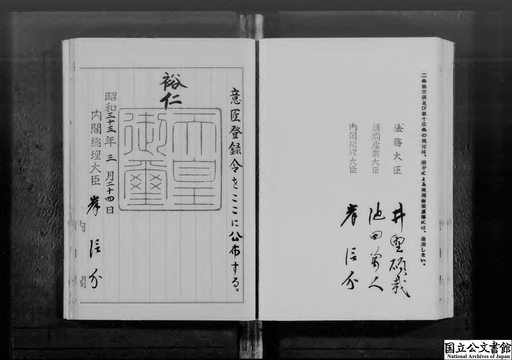 意匠登録令をここに公布する。
裕仁
天皇御璽
昭和三十五年三月二十四日
内閣総理大臣 岸信介
内閣
法務大臣 井野碩哉
通商産業大臣 池田勇人
内閣総理大臣 岸信介
国立公文書館
National Archives of Japan